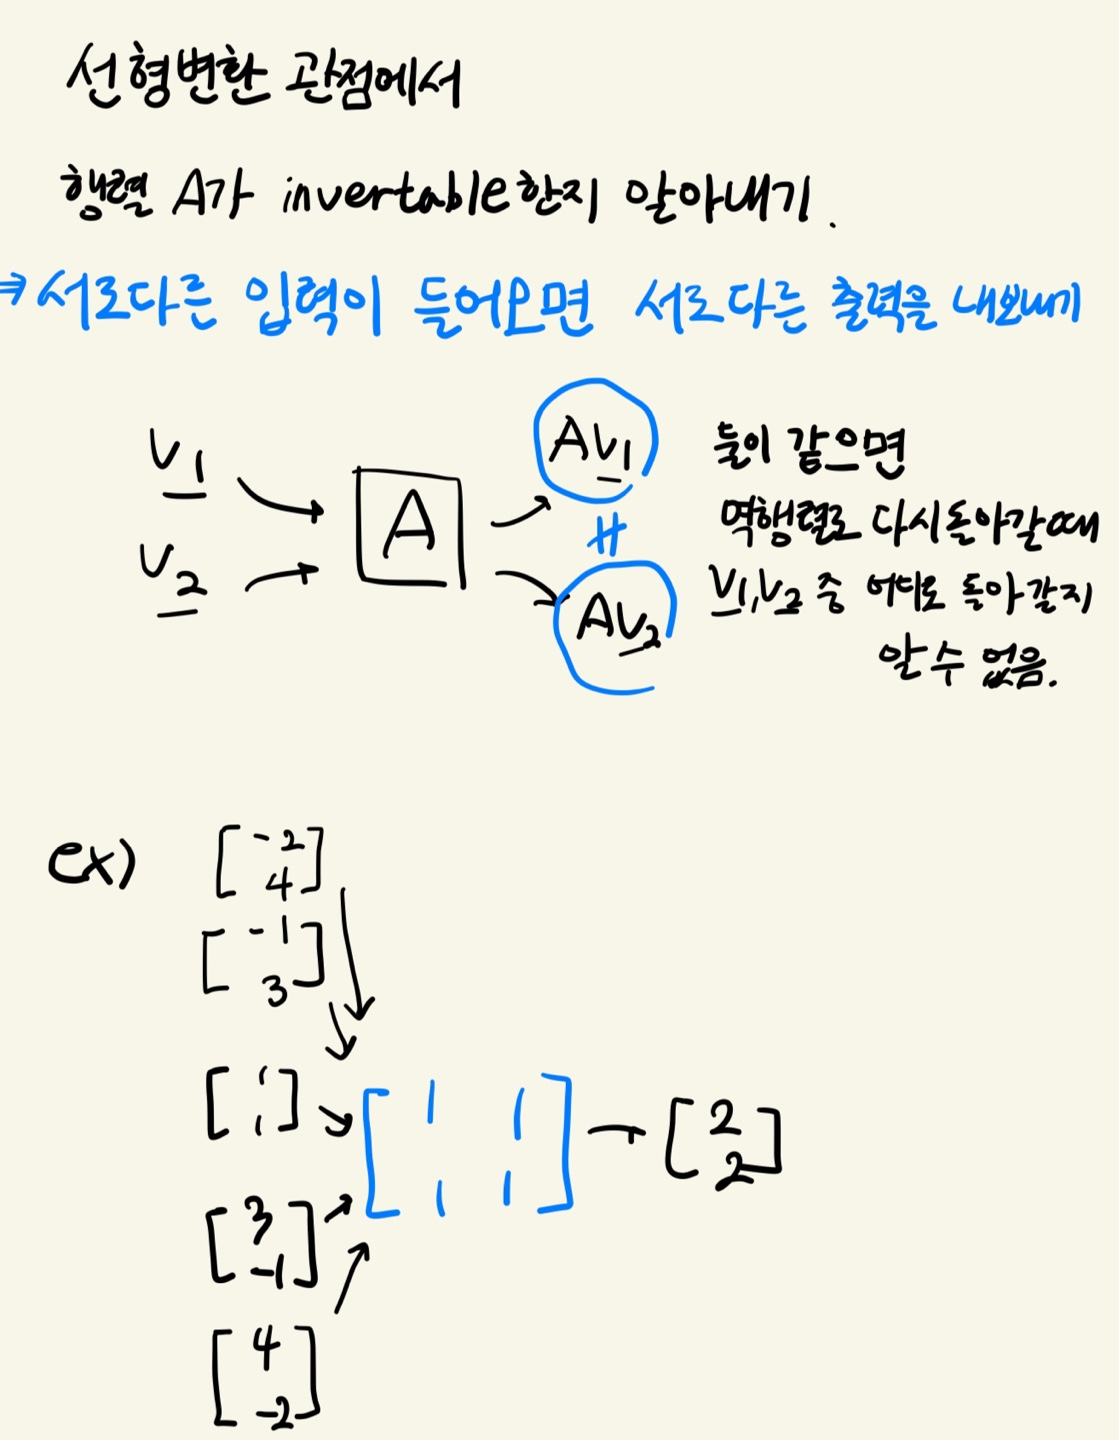 선형변환 관점에서
행렬 A가 invertable한지 알아내기.
⇒ 서로다른 입력이 들어오면 서로다른 출력을 내보내기
V1
V2
A
AV1
AV2
둘이 같으면
역행렬로 다시돌아갈때
V1,V2 중 어디로 돌아갈지
알수 없음.
ex)
[-2
4]
[-1
3]
[1
1]
[1 1
1 1]
→ [2
2]
[3
-1]
[4
-2]